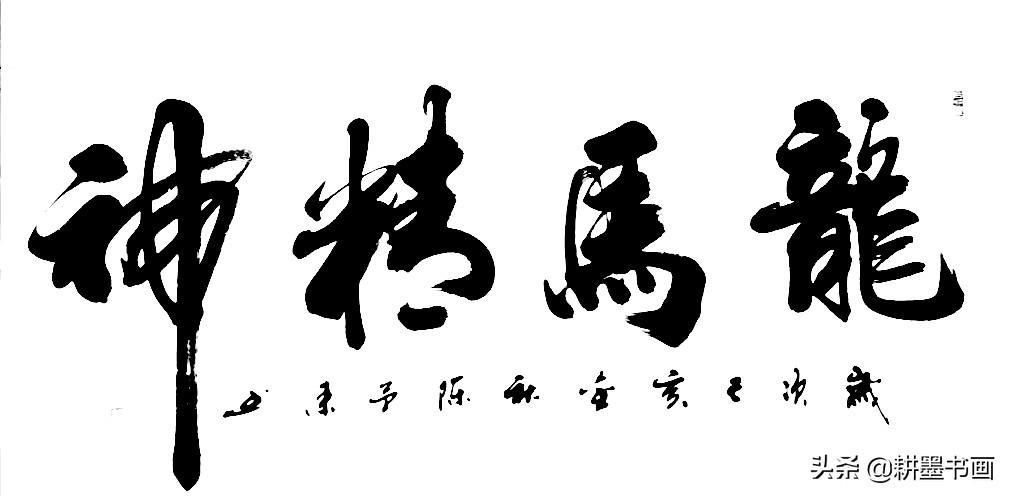 龍馬精神
歲次己亥金秋陈予東书
头条 @耕墨书画